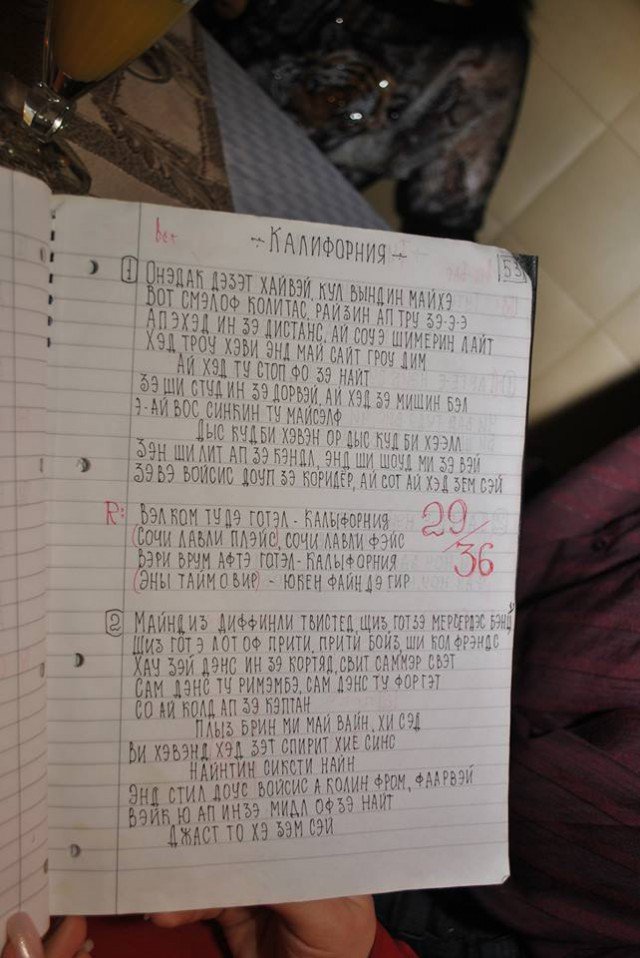 вет
÷ КАЛИФОРНИЯ ÷
53
1 ОНЭДАК ДЭЗЭТ ХАЙВЭЙ, КУЛ ВЫНДИН МАЙХЭ
ВОТ СМЭЛОФ КОЛИТАС, РАЙЗИН АП ТРУ ЗЭ-Э-Э
АПЭХЭД ИН ЗЭ ДИСТАНС, АЙ СОУЭ ШИМЕРИН ЛАЙТ
ХЭД ТРОУ ХЭВИ ЭНД МАЙ САЙТ ГРОУ ДИМ
АЙ ХЭД ТУ СТОП ФО ЗЭ НАЙТ
ЗЭ ШИ СТУД ИН ЗЭ ДОРВЭЙ, АЙ ХЭД ЗЭ МИШИН БЭЛ
Э-АЙ ВОС СИНКИН ТУ МАЙСЭЛФ
ДЫС КУД БИ ХЭВЭН ОР ДЫС КУД БИ ХЭЭЛЛ
ЗЭН ШИ ЛИТ АП ЗЭ КЭНДЛ, ЭНД ШИ ШОУД МИ ЗЭ ВЭЙ
ЗЭ ВЭ ВОЙСИС ДОУП ЗЭ КОРИДЁР, АЙ СОТ АЙ ХЭД ЗЕМ СЭЙ
R: ВЭЛКОМ ТУ ДЭ ГОТЭЛ - КАЛЫФОРНИЯ
(СОЧИ ЛАВЛИ ПЛЭЙС, СОЧИ ЛАВЛИ ФЭЙС
ВЭРИ ВРУМ АФТЭ ГОТЭЛ - КАЛЫФОРНИЯ
(ЭНЫ ТАЙМ О ВИР) - ЮКЕН ФАЙН ДЭ ГИР
29/36
2 МАЙНД ИЗ ДИФФИНЛИ ТВИСТЕД, ШИЗ ГОТ ЗЭ МЕРСЕРДЭС БЭНД
ШИЗ ГОТ Э ЛОТ ОФ ПРИТИ, ПРИТИ БОЙЗ, ШИ КОЛ ФРЭНДС
ХАУ ЗЭЙ ДЭНС ИН ЗЭ КОРТЯД, СВИТ САММЭР СВЭТ
САМ ДЭНС ТУ РИМЭМБЭ, САМ ДЭНС ТУ ФОРГЭТ
СО АЙ КОЛД АП ЗЭ КЭПТАН
ПЛЫЗ БРИН МИ МАЙ ВАЙН, ХИ СЭД
ВИ ХЭВЭНД ХЭД ЗЭТ СПИРИТ ХИЕ СИНС
НАЙНТИН СИКСТИ НАЙН
ЭНД СТИЛ ДОУС ВОЙСИС А КОЛИН ФРОМ, ФААРВЭЙ
ВЭЙК Ю АП ИН ЗЭ МИДЛ ОФ ЗЭ НАЙТ
ДЖАСТ ТО ХЭ ЗЭМ СЭЙ